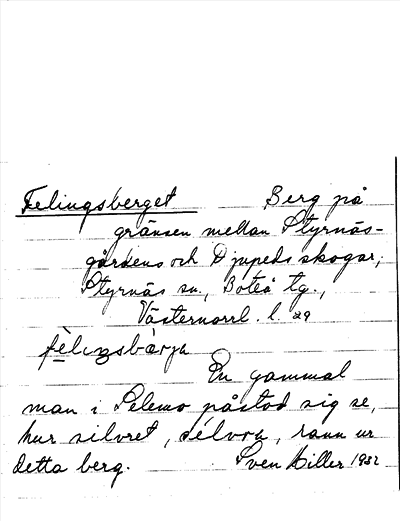 Felingsberget Berg på
gränsen mellan Styrnäs-
gårdens och Djupeds skogar,
Styrnäs sn., Boteå tg.,
Västernorrl. l. 29
fèlıŋsbærja
En gammal
man i Pelemo påstod sig se,
hur silvret, sélvra, rann ur
detta berg. Sven Hiller 1932